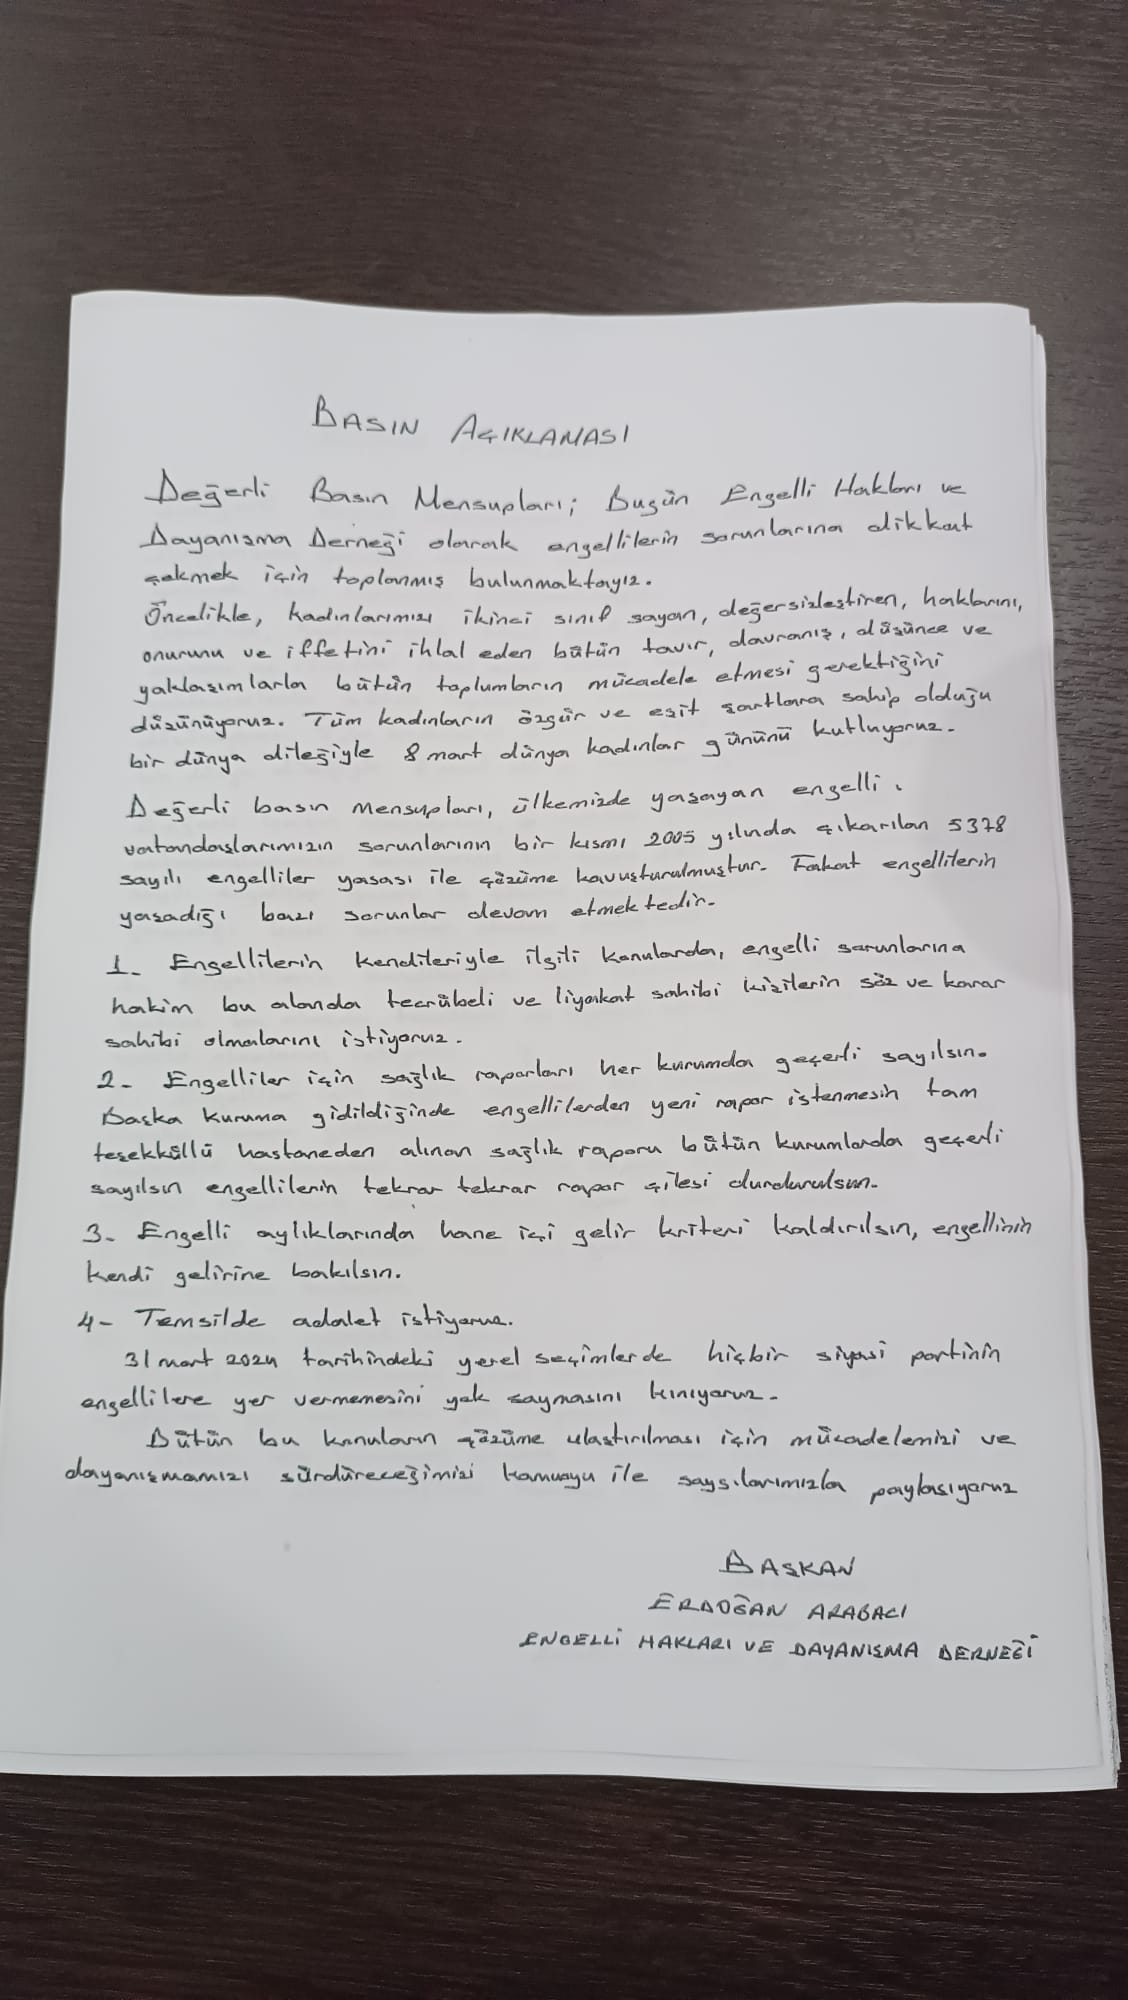 BASIN AÇIKLAMASI
Değerli Basın Mensupları; Bugün Engelli Hakları ve
Dayanışma Derneği olarak engellilerin sorunlarına dikkat
çekmek için toplanmış bulunmaktayız.
Öncelikle, kadınlarımızı ikinci sınıf sayan, değersizleştiren, haklarını,
onurunu ve iffetini ihlal eden bütün tavır, davranış, düşünce ve
yaklaşımlarla bütün toplumların mücadele etmesi gerektiğini
düşünüyoruz. Tüm kadınların özgür ve eşit şartlara sahip olduğu
bir dünya dileğiyle 8 mart dünya kadınlar gününü kutluyoruz.
Değerli basın mensupları, ülkemizde yaşayan engelli
vatandaşlarımızın sorunlarının bir kısmı 2005 yılında çıkarılan 5378
sayılı engelliler yasası ile çözüme kavuşturulmuştur. Fakat engellilerin
yaşadığı bazı sorunlar devam etmektedir.
1. Engellilerin kendileriyle ilgili konularda, engelli sorunlarına
hakim bu alanda tecrübeli ve liyakat sahibi kişilerin söz ve karar
sahibi olmalarını istiyoruz.
2- Engelliler için sağlık raporları her kurumda geçerli sayılsın.
Başka kuruma gidildiğinde engellilerden yeni rapor istenmesin tam
teşekküllü hastaneden alınan sağlık raporu bütün kurumlarda geçerli
sayılsın engellilerin tekrar tekrar rapor çilesi durdurulsun.
3- Engelli aylıklarında hane içi gelir kriteri kaldırılsın, engellinin
kendi gelirine bakılsın.
4- Temsilde adalet istiyoruz.
31 mart 2024 tarihindeki yerel seçimlerde hiçbir siyasi partinin
engellilere yer vermemesini yok saymasını kınıyoruz.
Bütün bu konuların çözüme ulaştırılması için mücadelemizi ve
dayanışmamızı sürdüreceğimizi kamuoyu ile saygılarımızla paylaşıyoruz
BAŞKAN
ERDOĞAN ARABACI
ENGELLİ HAKLARI VE DAYANIŞMA DERNEĞİ